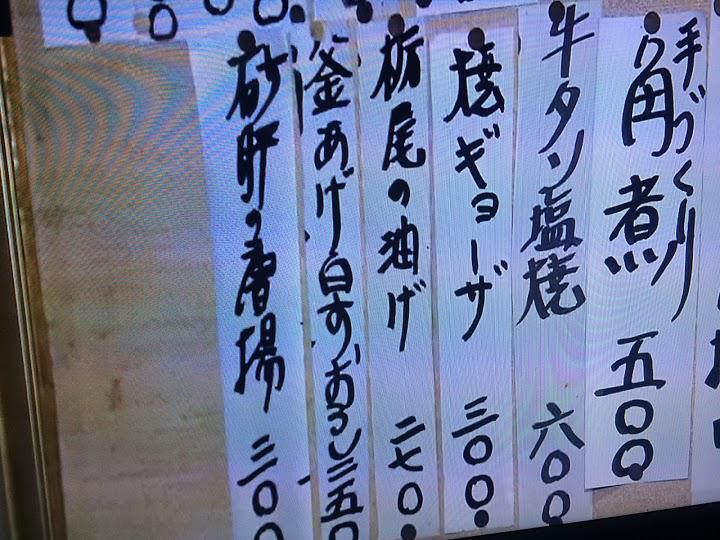 手づくり
角煮 五〇〇
牛タン塩焼 六〇〇
焼ギョーザ 三〇〇
栃尾の油げ 二七〇
釜あげ白すおろし 三五〇
砂肝の唐揚 三〇〇